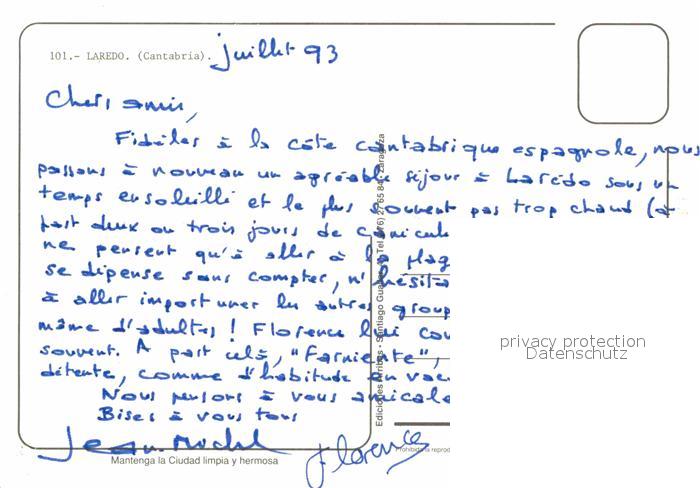 101.- LAREDO. (Cantabria). juillet 93
Chers amis,
Fidèles à la côte cantabrique espagnole, nous
passons à nouveau un agréable séjour à Laredo sous un
temps ensoleillé et le plus souvent pas trop chaud (à
part deux ou trois jours de canicule
ne pensent qu'à aller à la plag
se dépense sans compter, n'hésita
à aller importuner les autres group
même d'adultes ! Florence lui cou
souvent. A part celà, "Farniente",
détente, comme d'habitude en vac
Nous pensons à vous amicale
Bises à vous tous
Jean-Michel Florence
Mantenga la Ciudad limpia y hermosa
Prohibida la reprod
Ediciones Arribas - Santiago Tel. (976) 27 65 84 - Zaragoza
privacy protection
Datenschutz